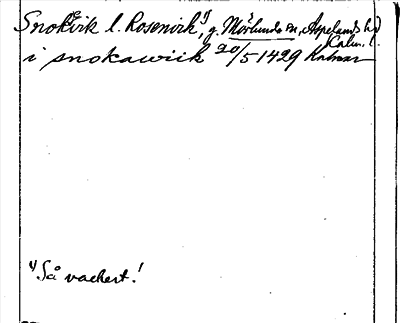 Snokvik l. Rosenvik,¹⁾ g. Mörlunda sn, Aspelands hd
Calm. l.
i snokawiik 20/5 1429 Kalmar
¹⁾ Så vackert!